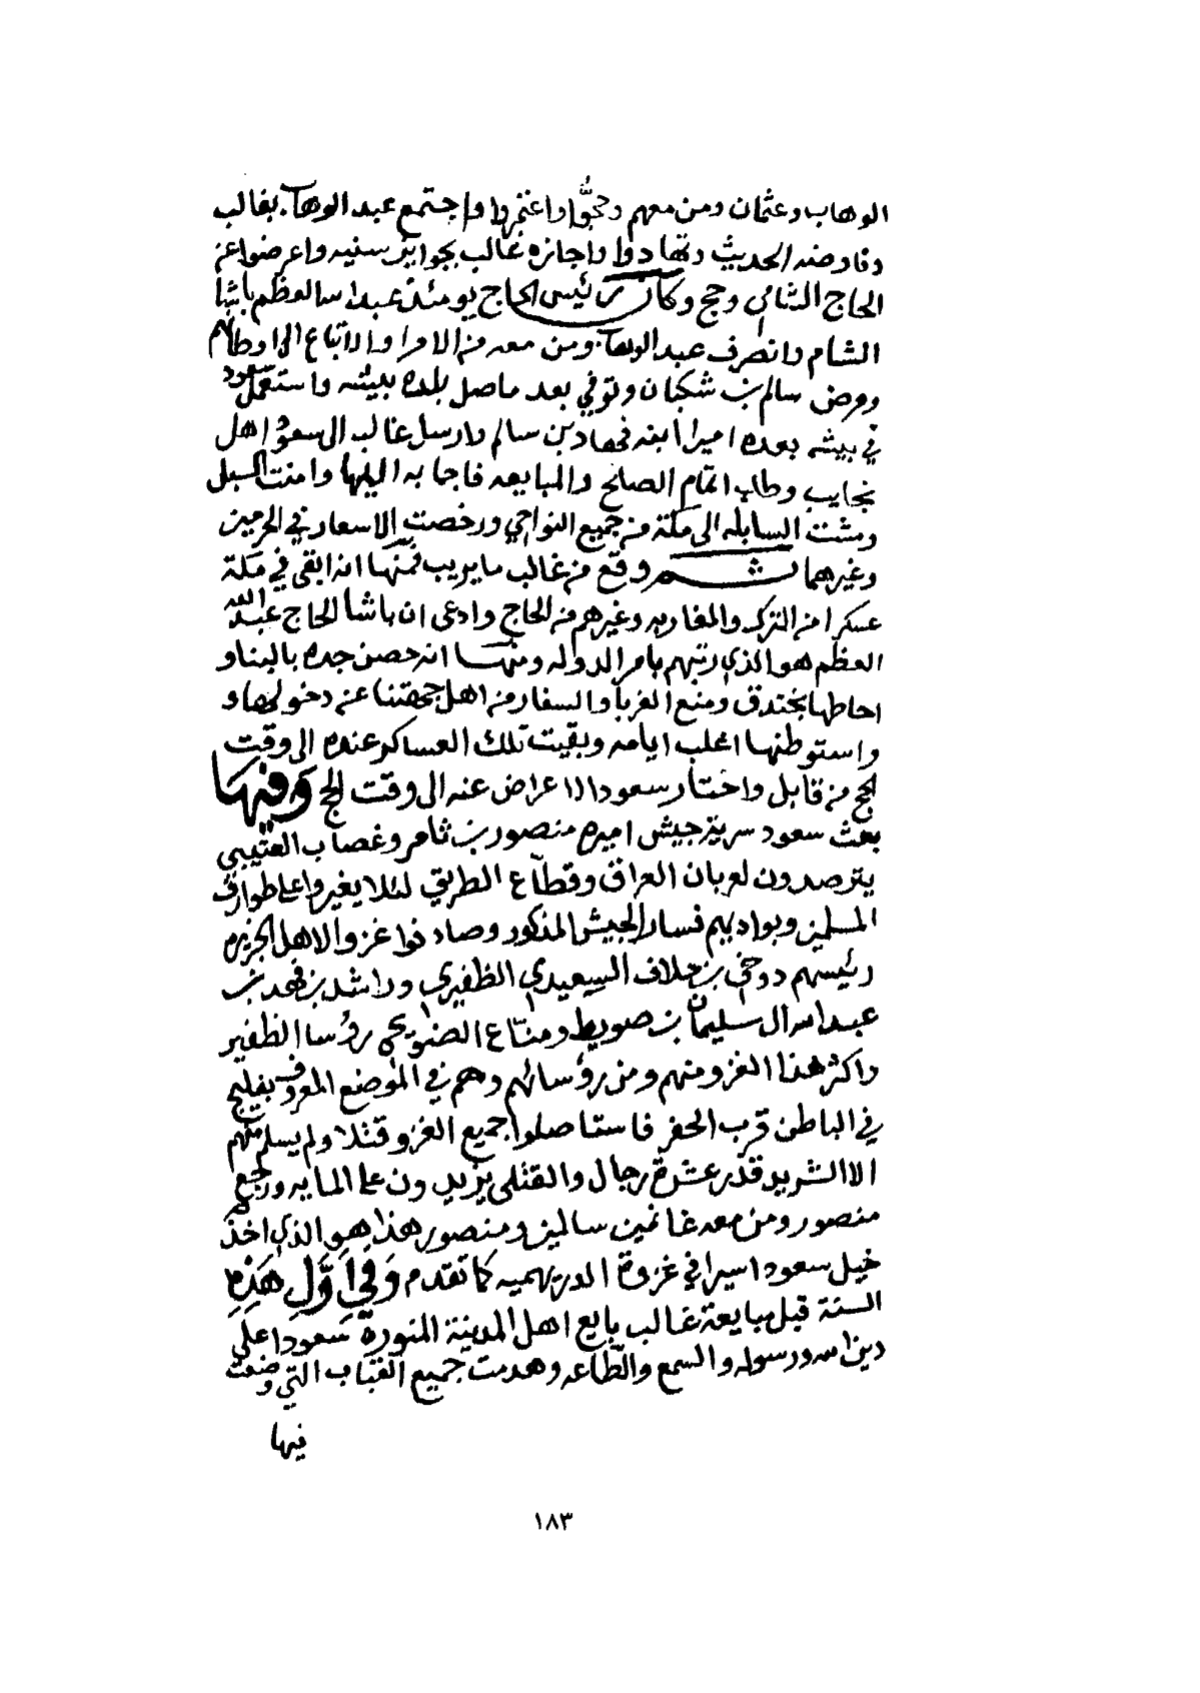 الوهاب وعثمان ومن معهم وحجوا واعتمروا واجتمع عبد الوهاب بغالب
وفاوضه الحديث وتهادوا واجازه غالب بجوايز سنيه واعرضوا عن
الحاج الشامي وحج وكان رئيس الحاج يومئذ عبد الله العظم باشا
الشام وانصرف عبد الوهاب ومن معه من الامرا والاتباع الى اوطانهم
ومرض سالم بن شكبان وتوفي بعد ما صل بلده بيشه واستعمل سعود
في بيشه بعده اميرا ابنه فهاد بن سالم وارسل غالب الى سعود اهل
نجايب وطلب اتمام الصلح والمبايعه فاجابه اليها وامنت السبل
ومشت السابله الى مكة من جميع النواحي ورخصت الاسعار في الحرمين
وغيرهما ثم وقع من غالب ما يريب فمنها انه ابقى في مكة
عسكرا من الترك والمغاربه وغيرهم من الحاج وادعى ان باشا الحاج عبد الله
العظم هو الذي رتبهم بامر الدوله ومنها انه حصن جده بالبنا و
احاطها بخندق ومنع الغربا والسفار من اهل جهتنا عن دخولها و
واستوطنها اغلب ايامه وبقيت تلك العساكر عنده الى وقت
الحج من قابل واختار سعود الاعراض عنه الى وقت الحج وفيها
بعث سعود سرية جيش اميره منصور بن ثامر وغصاب العتيبي
يترصدون لعربان العراق وقطاع الطريق لئلا يغيروا على طوارف
المسلمين وبواديهم فسار الجيش المذكور وصادفوا غزوا لاهل الجزيره
رئيسهم دوخي بن حلاف السعيدي الظفيري وراشد بن فهد بن
عبد الله ال سليمان بن صويط ومناع الضويحي رؤسا الظفير
واكثر هذا الغزو منهم ومن رؤسائهم وهم في الموضع المعروف بفليج
في الباطن قرب الحفر فاستاصلوا جميع الغزو قتلا ولم يسلم منهم
الا الشريد قدر عشرة رجال والقتلى يزيدون على المايه ورجع
منصور ومن معه غانمين سالمين ومنصور هذا هو الذي اخذ
خيل سعود اسيرا في غزوة الدريهميه كما تقدم وفي اول هذه
السنة قبل مبايعة غالب بايع اهل المدينة المنورة سعودا على
دين الله ورسوله والسمع والطاعه وهدمت جميع القباب التي وضعت
فيها
١٨٣